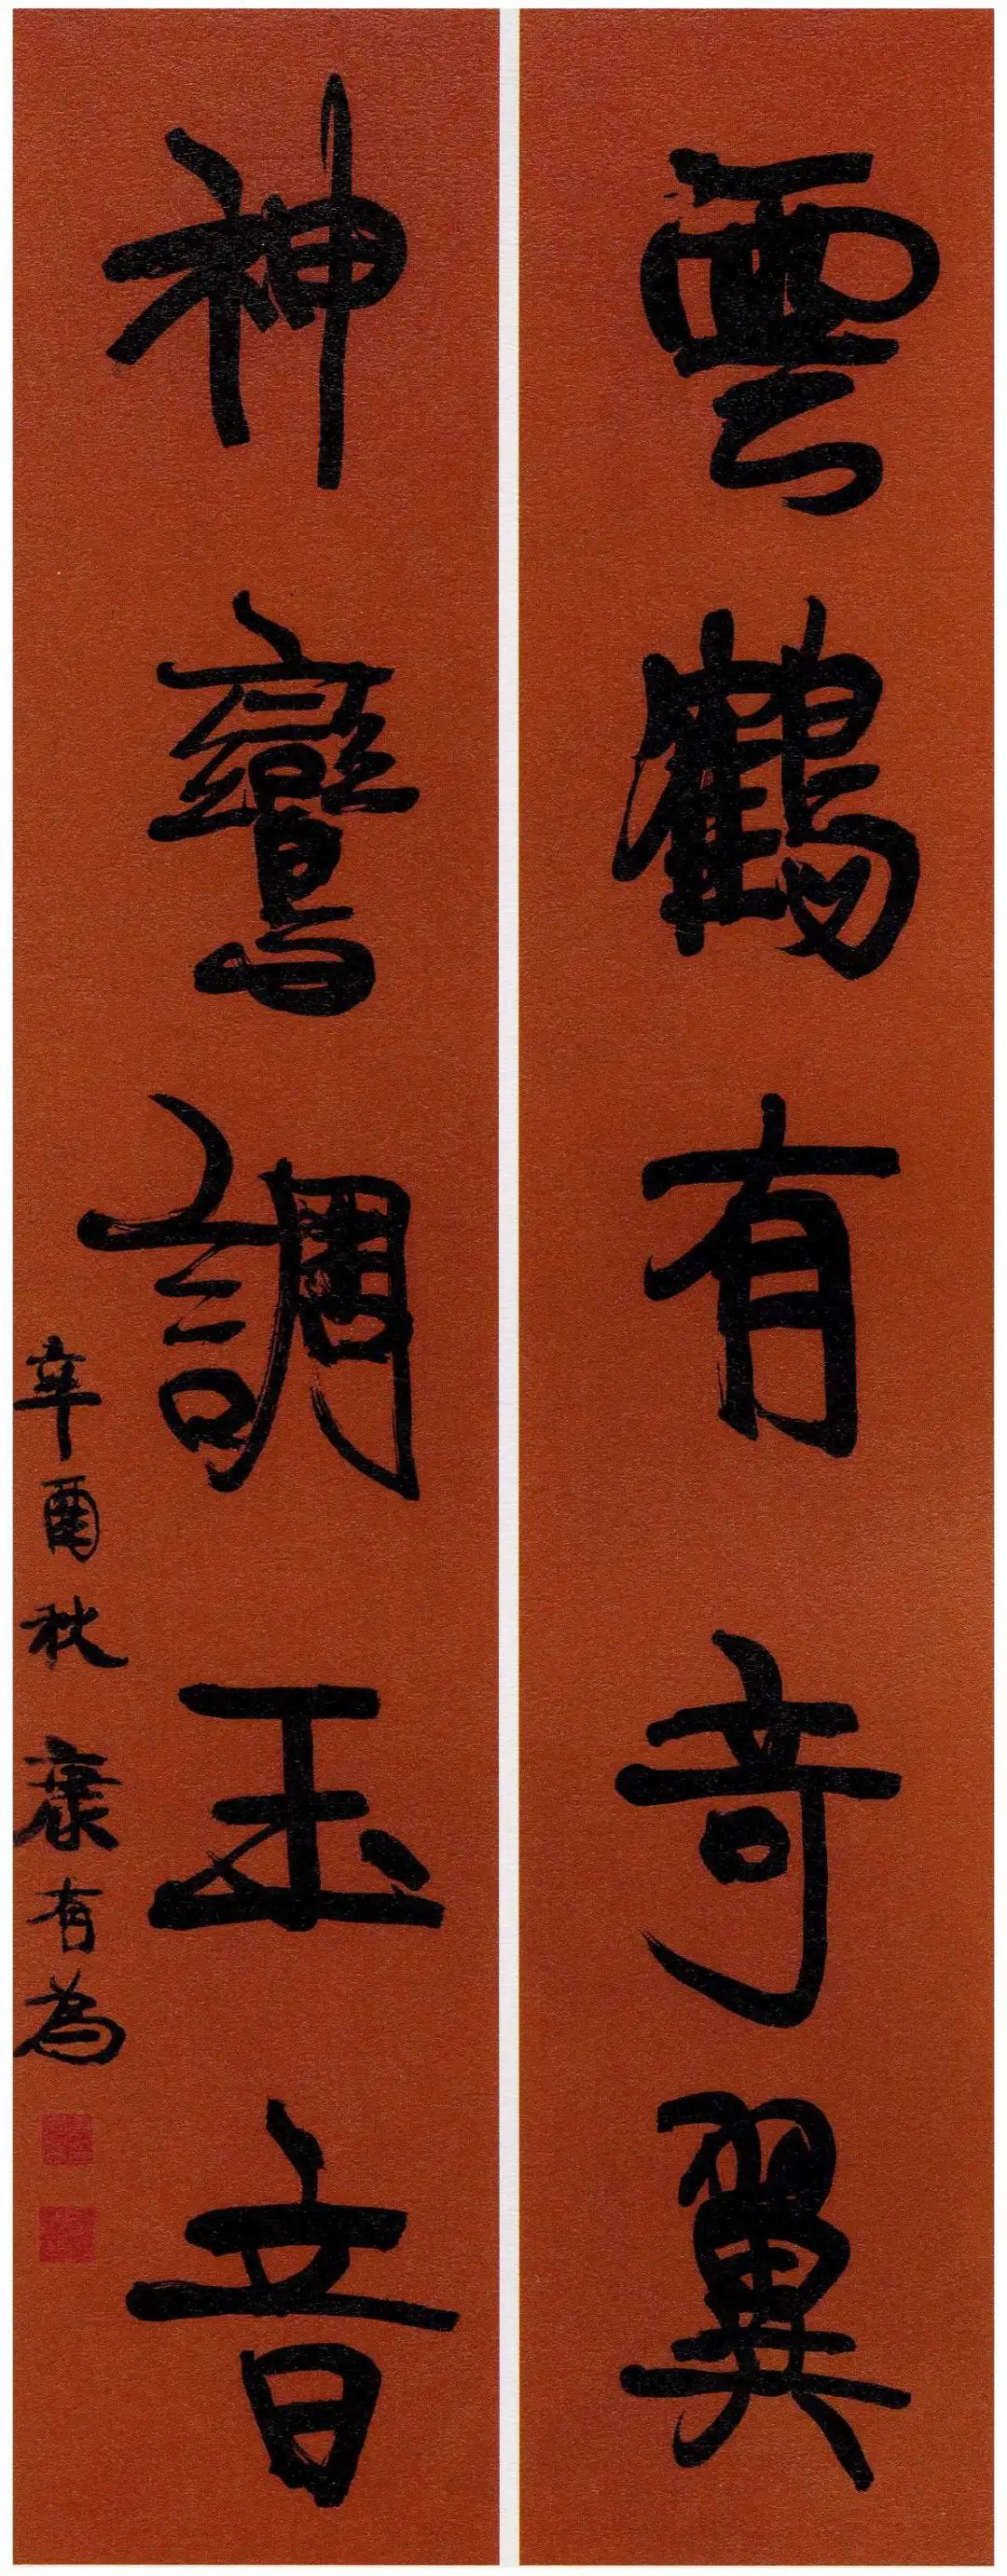 雲鶴有奇翼
神鸞調玉音
辛酉秋 康有為